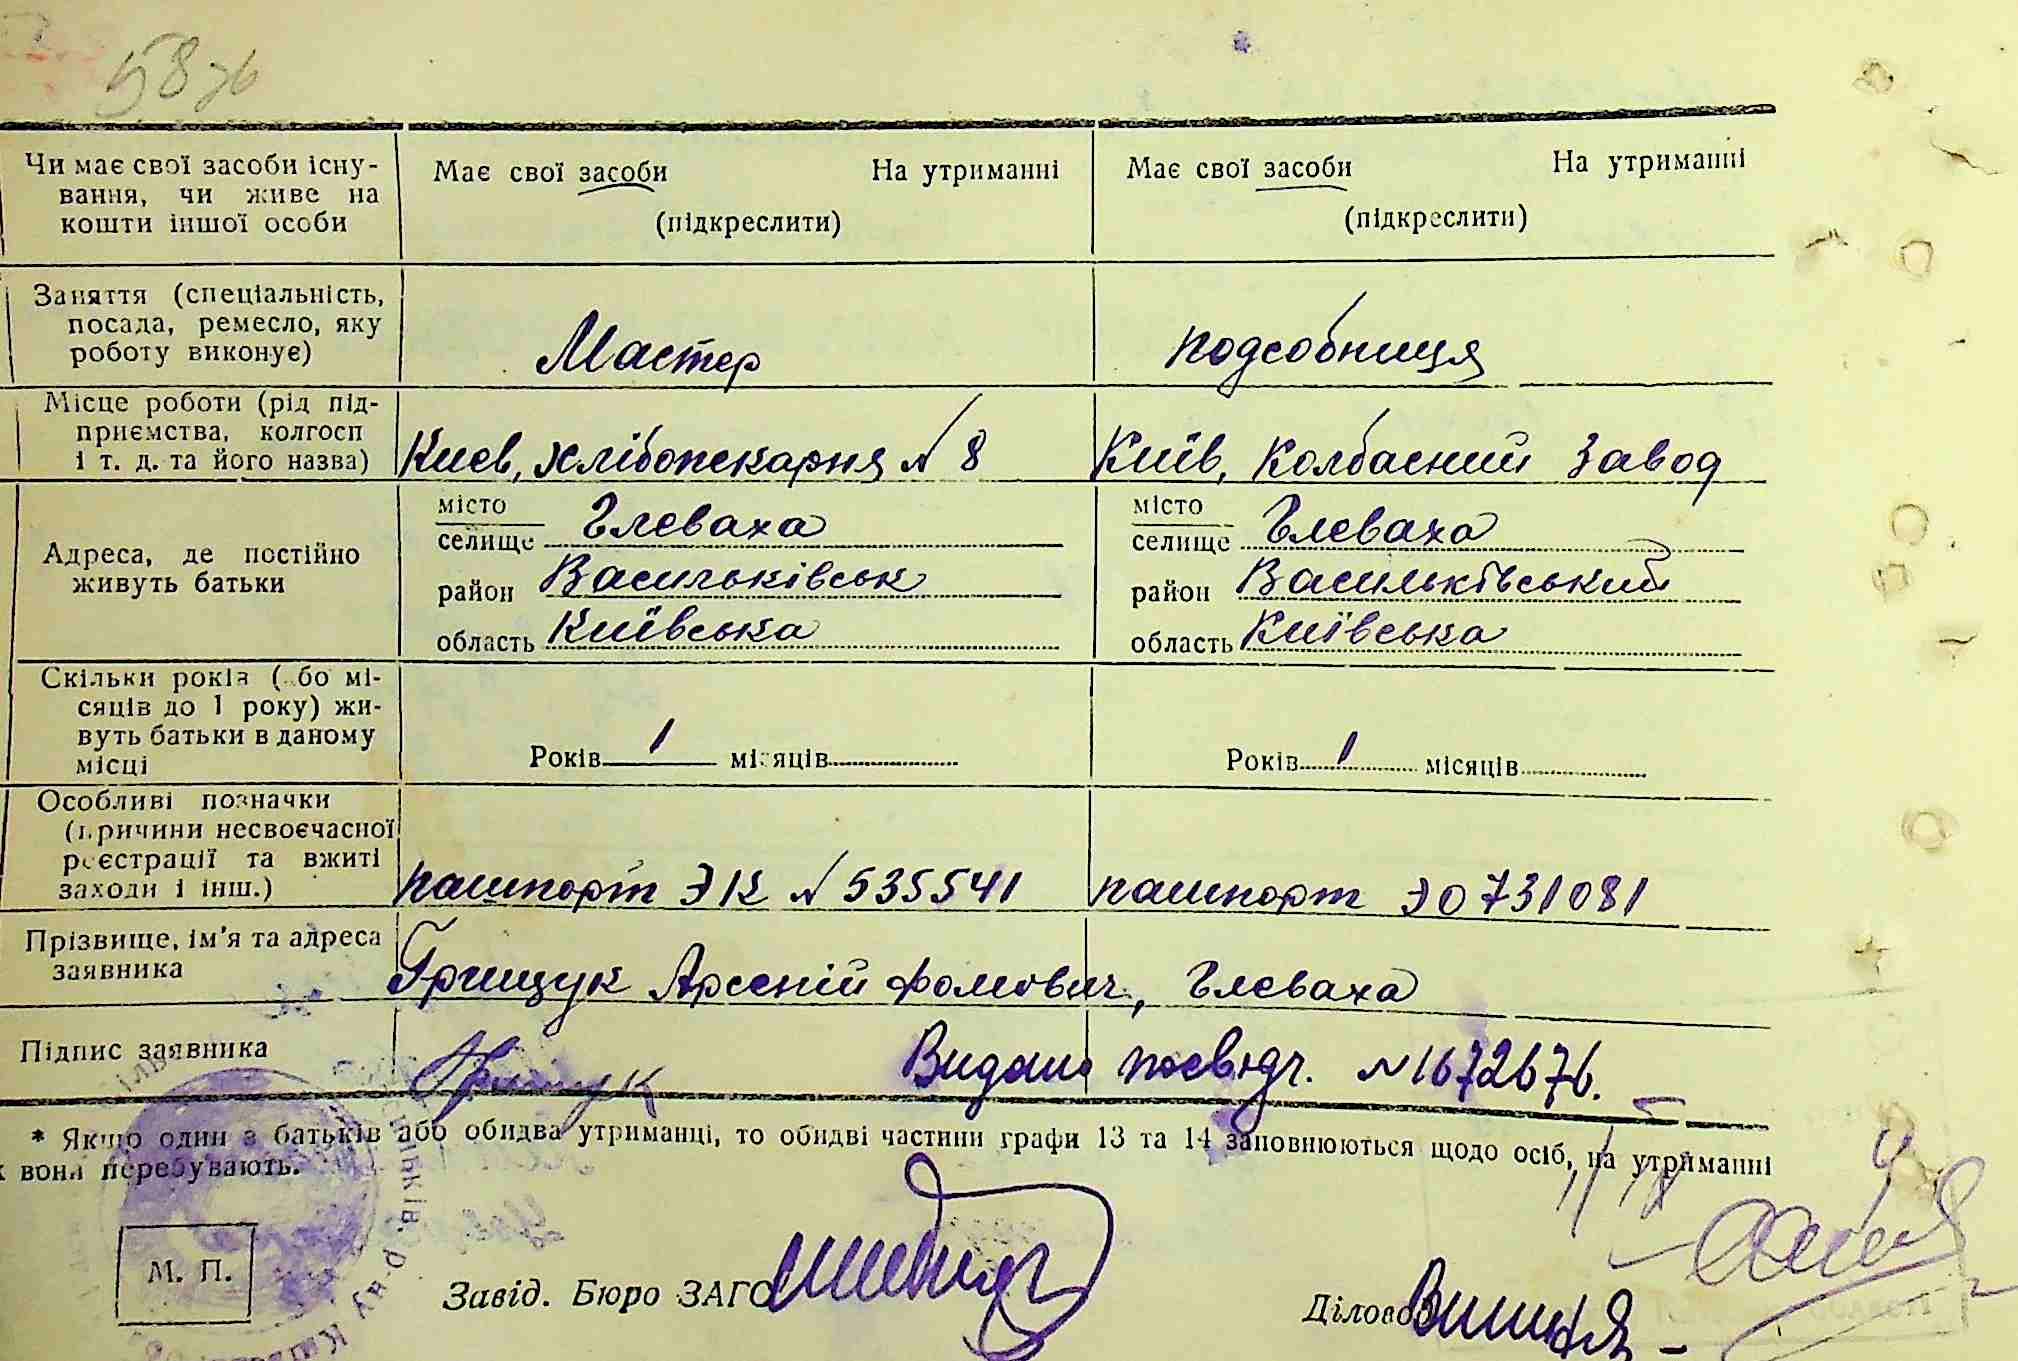 58 зв
Чи має свої засоби існу-
вання, чи живе на
кошти іншої особи
Має свої засоби На утриманні
(підкреслити)
Має свої засоби На утриманні
(підкреслити)
Заняття (спеціальність,
посада, ремесло, яку
роботу виконує)
Мастер
подсобниця
Місце роботи (рід під-
приємства, колгосп
і т. д. та його назва)
Киев, хлібопекарня № 8
Київ, Колбасний завод
Адреса, де постійно
живуть батьки
місто
селище Глеваха
район Васильківськ
область Київська
місто
селище Глеваха
район Васильківський
область Київська
Скільки років ( бо мі-
сяців до 1 року) жи-
вуть батьки в даному
місці
Років 1 місяців
Років 1 місяців
Особливі позначки
(причини несвоєчасної
реєстрації та вжиті
заходи і інш.)
пашпорт ЭК № 535541
пашпорт ЭО 731081
Прізвище, ім'я та адреса
заявника
Грищук Арсеній Фомович, Глеваха
Підпис заявника
Грищук
Видано посвідч. № 1672676.
* Якщо один з батьків або обидва утриманці, то обидві частини графи 13 та 14 заповнюються щодо осіб, на утриманні
х вони перебувають.
М. П.
Завід. Бюро ЗАГС
Діловод